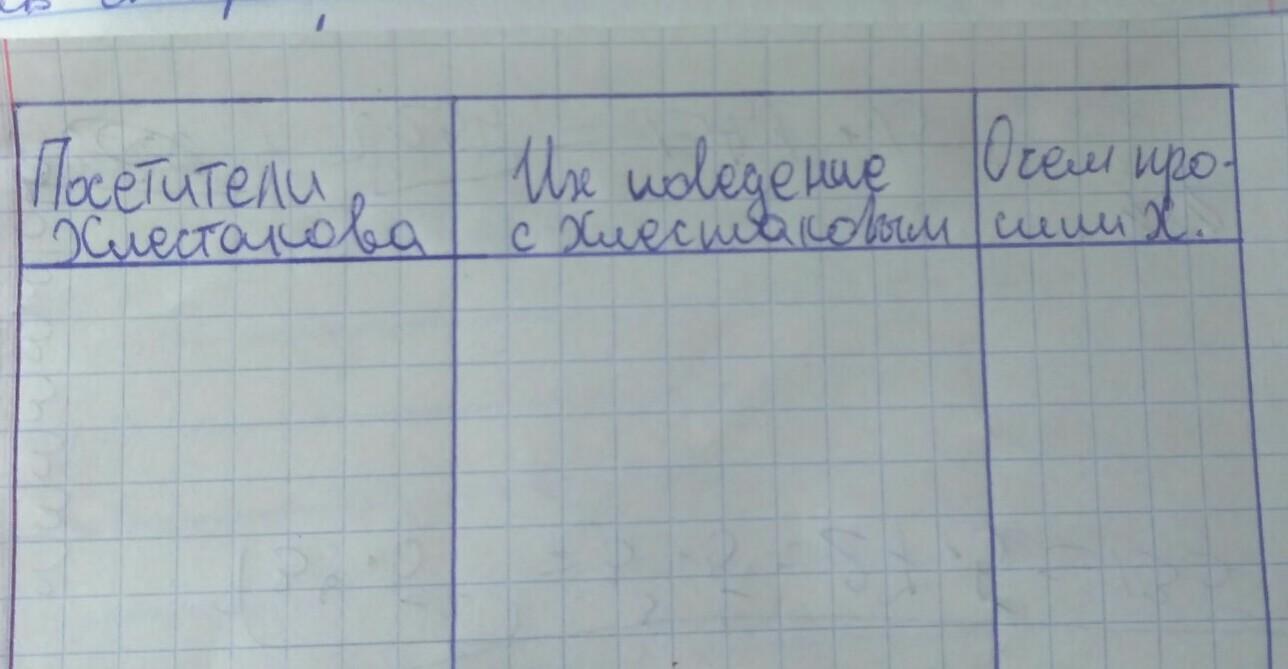 Посетители
Хлестакова
Их поведение
с Хлестаковым
О чем про-
сили Х.